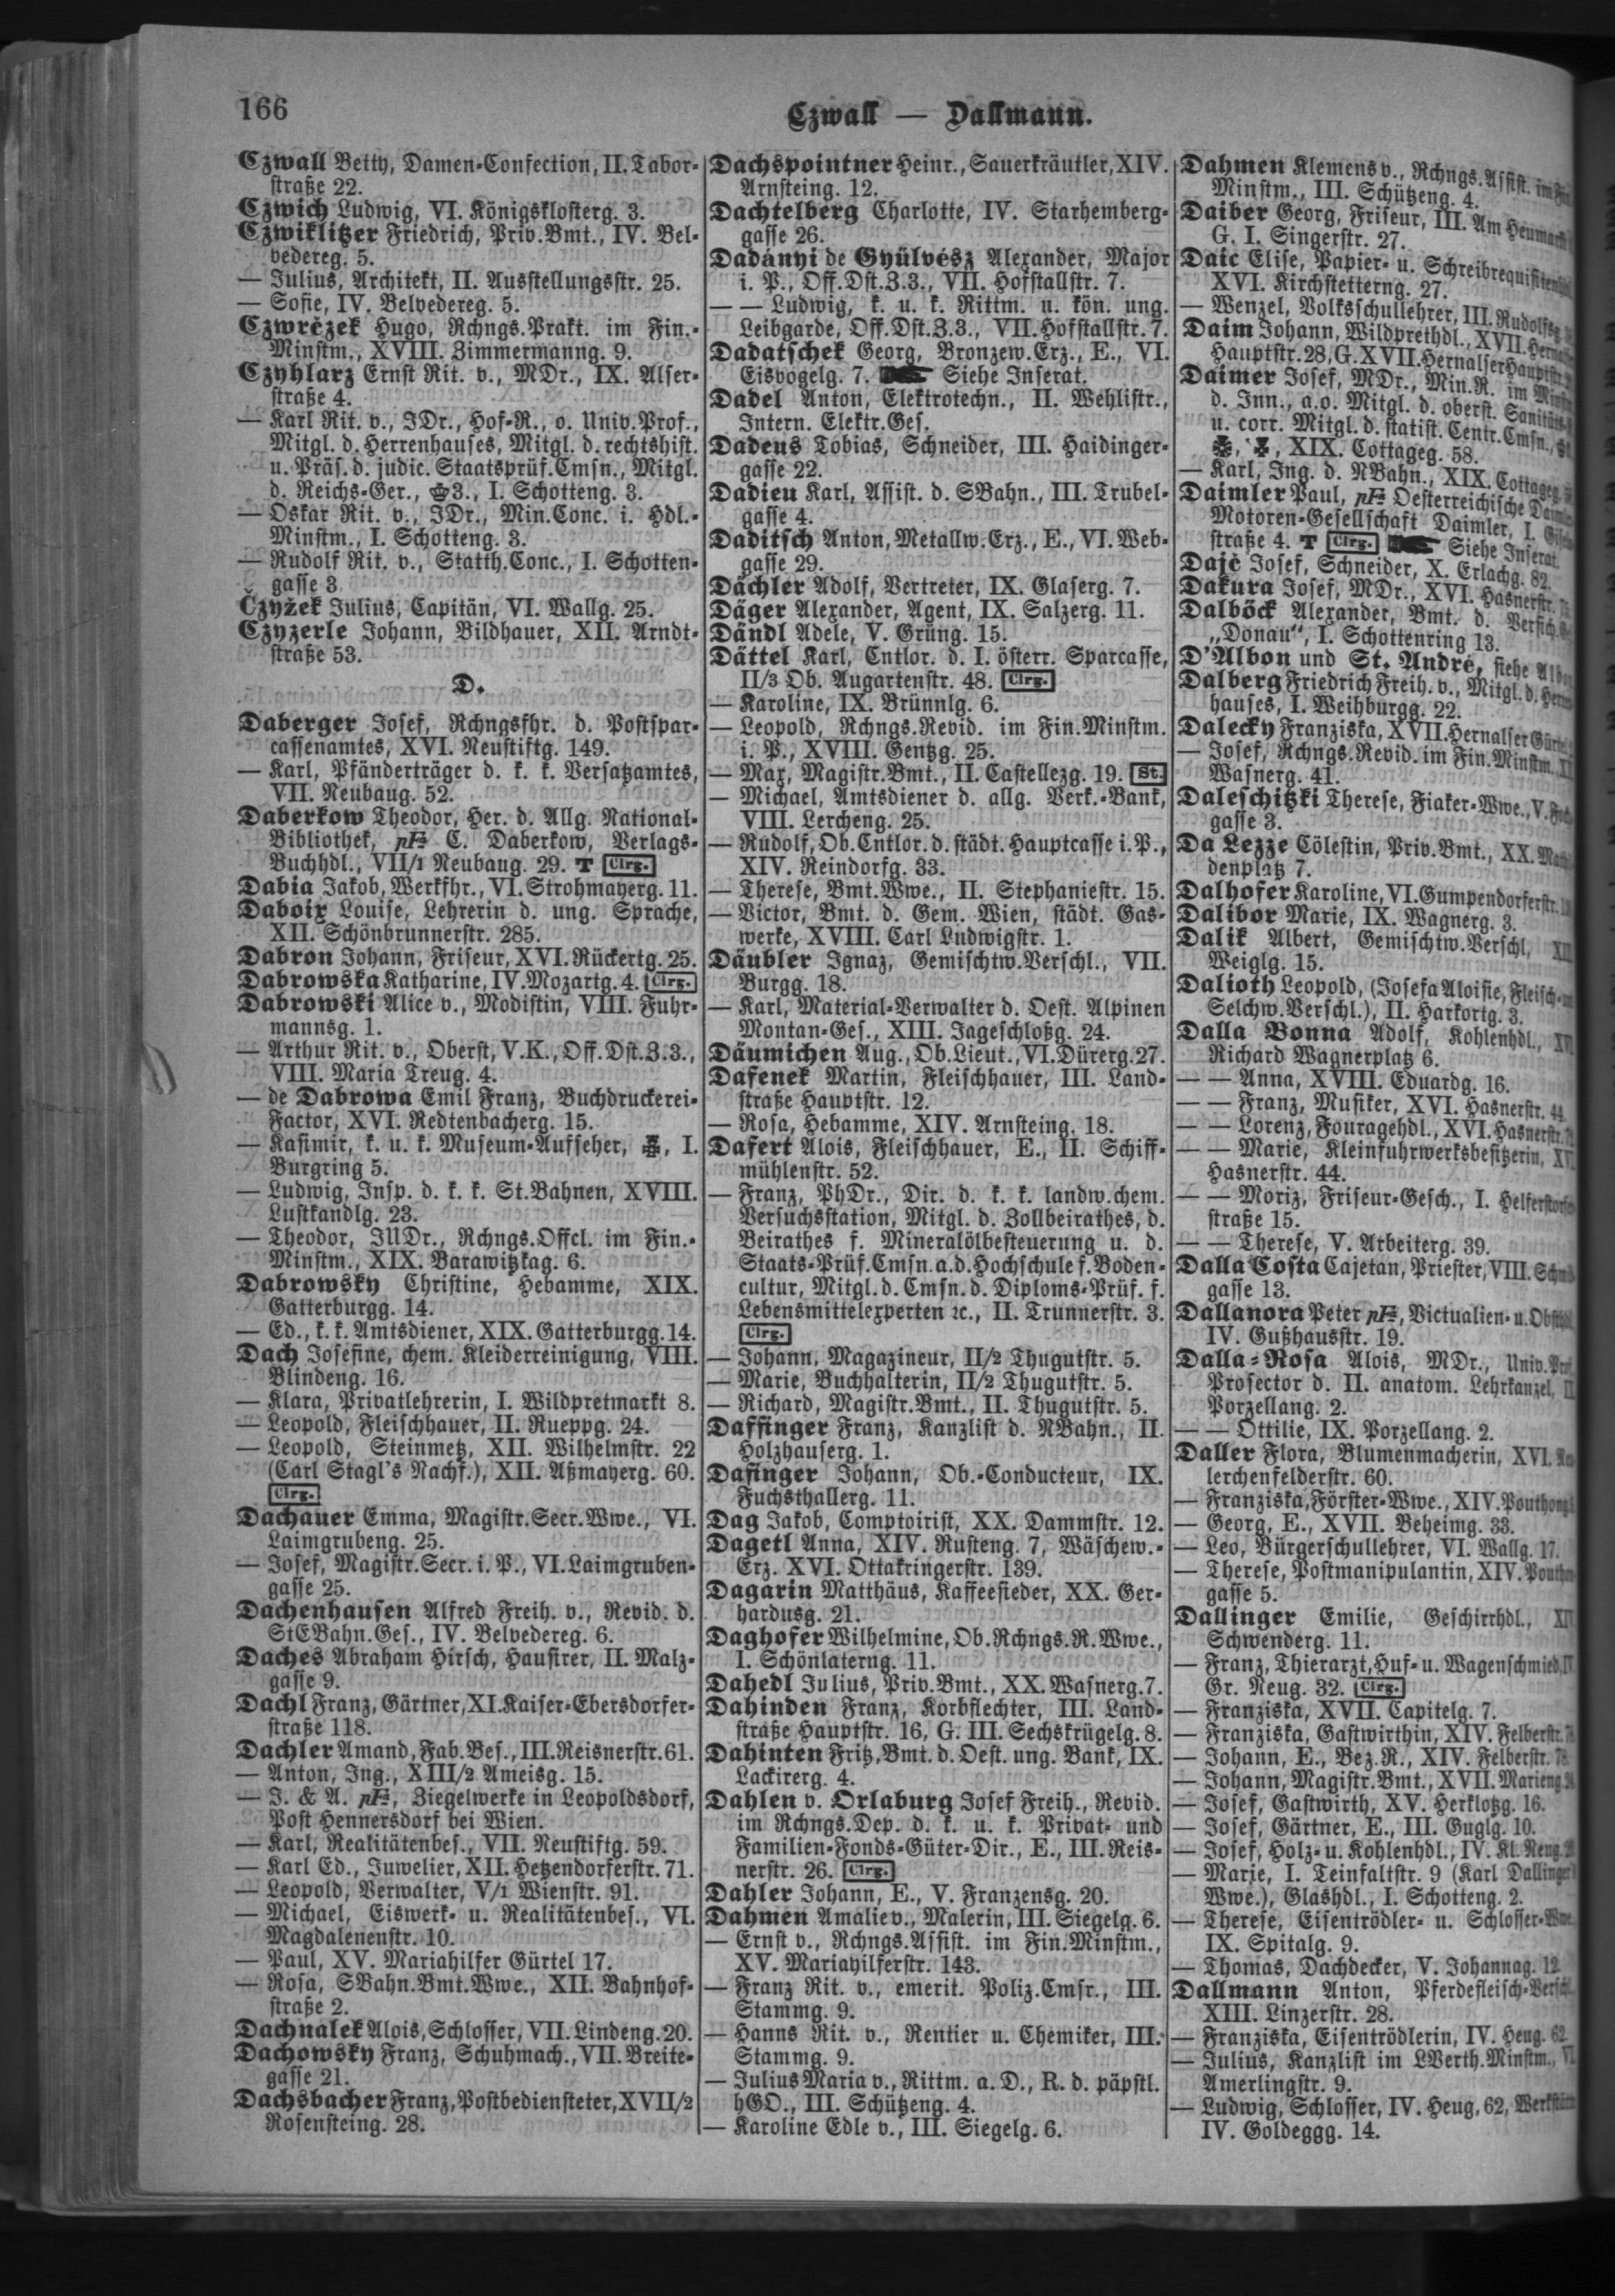 166
Czwall — Dallmann.
Czwall Betty, Damen-Confection, II. Tabor-
straße 22.
Czwich Ludwig, VI. Königsklosterg. 3.
Czwiklitzer Friedrich, Priv.Bmt., IV. Bel-
vedereg. 5.
— Julius, Architekt, II. Ausstellungsstr. 25.
— Sofie, IV. Belvedereg. 5.
Czwrčzek Hugo, Rchngs.Prakt. im Fin.-
Minstm., XVIII. Zimmermanng. 9.
Czyhlarz Ernst Rit. v., MDr., IX. Alser-
straße 4.
— Karl Rit. v., JDr., Hof-R., o. Univ.Prof.,
Mitgl. d. Herrenhauses, Mitgl. d. rechtshist.
u. Präs. d. judic. Staatsprüf.Cmsn., Mitgl.
d. Reichs-Ger., 3., I. Schotteng. 3.
— Oskar Rit. v., JDr., Min.Conc. i. Hdl.-
Minstm., I. Schotteng. 3.
— Rudolf Rit. v., Statth.Conc., I. Schotten-
gasse 3.
Čzyžek Julius, Capitän, VI. Wallg. 25.
Czyzerle Johann, Bildhauer, XII. Arndt-
straße 53.
D.
Daberger Josef, Rchngsfhr. d. Postspar-
cassenamtes, XVI. Neustiftg. 149.
— Karl, Pfänderträger d. k. k. Versatzamtes,
VII. Neubaug. 52.
Daberkow Theodor, Her. d. Allg. National-
Bibliothek, pF C. Daberkow, Verlags-
Buchhdl., VII/1 Neubaug. 29. T Clrg.
Dabia Jakob, Werkfhr., VI. Strohmayerg. 11.
Daboix Louise, Lehrerin d. ung. Sprache,
XII. Schönbrunnerstr. 285.
Dabron Johann, Friseur, XVI. Rückertg. 25.
Dabrowska Katharine, IV. Mozartg. 4. Clrg.
Dabrowski Alice v., Modistin, VIII. Fuhr-
mannsg. 1.
— Arthur Rit. v., Oberst, V.K., Off.Dst.Z.3.,
VIII. Maria Treug. 4.
— de Dabrowa Emil Franz, Buchdruckerei-
Factor, XVI. Redtenbacherg. 15.
— Kasimir, k. u. k. Museum-Aufseher, , I.
Burgring 5.
— Ludwig, Insp. d. k. k. St.Bahnen, XVIII.
Lustkandlg. 23.
— Theodor, JUDr., Rchngs.Offcl. im Fin.-
Minstm., XIX. Barawitzkag. 6.
Dabrowsky Christine, Hebamme, XIX.
Gatterburgg. 14.
— Ed., k. k. Amtsdiener, XIX. Gatterburgg. 14.
Dach Josefine, chem. Kleiderreinigung, VIII.
Blindeng. 16.
— Klara, Privatlehrerin, I. Wildpretmarkt 8.
— Leopold, Fleischhauer, II. Rueppg. 24.
— Leopold, Steinmetz, XII. Wilhelmstr. 22
(Carl Stagl's Nachf.), XII. Aßmayerg. 60.
Clrg.
Dachauer Emma, Magistr.Secr.Wwe., VI.
Laimgrubeng. 25.
— Josef, Magistr.Secr. i. P., VI. Laimgruben-
gasse 25.
Dachenhausen Alfred Freih. v., Revid. d.
StEBahn.Ges., IV. Belvedereg. 6.
Daches Abraham Hirsch, Hausirer, II. Malz-
gasse 9.
Dachl Franz, Gärtner, XI. Kaiser-Ebersdorfer-
straße 118.
Dachler Amand, Fab.Bes., III. Reisnerstr. 61.
— Anton, Ing., XIII/2 Ameisg. 15.
— J. & A. pF, Ziegelwerke in Leopoldsdorf,
Post Hennersdorf bei Wien.
— Karl, Realitätenbes., VII. Neustiftg. 59.
— Karl Ed., Juwelier, XII. Hetzendorferstr. 71.
— Leopold, Verwalter, V/1 Wienstr. 91.
— Michael, Eiswerk- u. Realitätenbes., VI.
Magdalenenstr. 10.
— Paul, XV. Mariahilfer Gürtel 17.
— Rosa, SBahn.Bmt.Wwe., XII. Bahnhof-
straße 2.
Dachnalek Alois, Schlosser, VII. Lindeng. 20.
Dachowsky Franz, Schuhmach., VII. Breite-
gasse 21.
Dachsbacher Franz, Postbediensteter, XVII/2
Rosensteing. 28.
Dachspointner Heinr., Sauerkräutler, XIV.
Arnsteing. 12.
Dachtelberg Charlotte, IV. Starhemberg-
gasse 26.
Dadányi de Gyülvész Alexander, Major
i. P., Off.Dst.Z.3., VII. Hofstallstr. 7.
— — Ludwig, k. u. k. Rittm. u. kön. ung.
Leibgarde, Off.Dst.Z.3., VII. Hofstallstr. 7.
Dadatschek Georg, Bronzew.Erz., E., VI.
Eisvogelg. 7. Siehe Inserat.
Dadel Anton, Elektrotechn., II. Wehlistr.,
Intern. Elektr.Ges.
Dadeus Tobias, Schneider, III. Haidinger-
gasse 22.
Dadieu Karl, Assist. d. SBahn., III. Trubel-
gasse 4.
Daditsch Anton, Metallw.Erz., E., VI. Web-
gasse 29.
Dächler Adolf, Vertreter, IX. Glaserg. 7.
Däger Alexander, Agent, IX. Salzerg. 11.
Dändl Adele, V. Grüng. 15.
Dättel Karl, Cntlor. d. I. österr. Sparcasse,
II/3 Ob. Augartenstr. 48. Clrg.
— Karoline, IX. Brünnlg. 6.
— Leopold, Rchngs.Revid. im Fin.Minstm.
i. P., XVIII. Gentzg. 25.
— Max, Magistr.Bmt., II. Castellezg. 19. St.
— Michael, Amtsdiener d. allg. Verk.-Bank,
VIII. Lercheng. 25.
— Rudolf, Ob.Cntlor. d. städt. Hauptcasse i. P.,
XIV. Reindorfg. 33.
— Therese, Bmt.Wwe., II. Stephaniestr. 15.
— Victor, Bmt. d. Gem. Wien, städt. Gas-
werke, XVIII. Carl Ludwigstr. 1.
Däubler Ignaz, Gemischtw.Verschl., VII.
Burgg. 18.
— Karl, Material-Verwalter d. Oest. Alpinen
Montan-Ges., XIII. Jageschloßg. 24.
Däumichen Aug., Ob.Lieut., VI. Dürerg. 27.
Dafenek Martin, Fleischhauer, III. Land-
straße Hauptstr. 12.
— Rosa, Hebamme, XIV. Arnsteing. 18.
Dafert Alois, Fleischhauer, E., II. Schiff-
mühlenstr. 52.
— Franz, PhDr., Dir. d. k. k. landw.chem.
Versuchsstation, Mitgl. d. Zollbeirathes, d.
Beirathes f. Mineralölbesteuerung u. d.
Staats-Prüf.Cmsn. a. d. Hochschule f. Boden-
cultur, Mitgl. d. Cmsn. d. Diploms-Prüf. f.
Lebensmittelexperten ꝛc., II. Trunnerstr. 3.
Clrg.
— Johann, Magazineur, II/2 Thugutstr. 5.
— Marie, Buchhalterin, II/2 Thugutstr. 5.
— Richard, Magistr.Bmt., II. Thugutstr. 5.
Daffinger Franz, Kanzlist d. NBahn., II.
Holzhauserg. 1.
Dafinger Johann, Ob.-Conducteur, IX.
Fuchsthallerg. 11.
Dag Jakob, Comptoirist, XX. Dammstr. 12.
Dagetl Anna, XIV. Rusteng. 7, Wäschew.-
Erz. XVI. Ottakringerstr. 139.
Dagarin Matthäus, Kaffeesieder, XX. Ger-
hardusg. 21.
Daghofer Wilhelmine, Ob.Rchngs.R.Wwe.,
I. Schönlaterng. 11.
Dahedl Julius, Priv.Bmt., XX. Wasnerg. 7.
Dahinden Franz, Korbflechter, III. Land-
straße Hauptstr. 16, G. III. Sechskrügelg. 8.
Dahinten Fritz, Bmt. d. Oest. ung. Bank, IX.
Lackirerg. 4.
Dahlen v. Orlaburg Josef Freih., Revid.
im Rchngs.Dep. d. k. u. k. Privat- und
Familien-Fonds-Güter-Dir., E., III. Reis-
nerstr. 26. Clrg.
Dahler Johann, E., V. Franzensg. 20.
Dahmen Amalie v., Malerin, III. Siegelg. 6.
— Ernst v., Rchngs.Assist. im Fin.Minstm.,
XV. Mariahilferstr. 143.
— Franz Rit. v., emerit. Poliz.Cmsr., III.
Stammg. 9.
— Hanns Rit. v., Rentier u. Chemiker, III.
Stammg. 9.
— Julius Maria v., Rittm. a. D., R. d. päpstl.
hGO., III. Schützeng. 4.
— Karoline Edle v., III. Siegelg. 6.
Dahmen Klemens v., Rchngs.Assist. im
Minstm., III. Schützeng. 4.
Daiber Georg, Friseur, III. Am Heumarkt
G. I. Singerstr. 27.
Daic Elise, Papier- u.
XVI. Kirchstetterng. 27.
— Wenzel, Volksschullehrer, III.
Daim Johann, Wildprethdl., XVII.
Hauptstr. 28, G. XVII. Hernalser Hauptstr.
Daimer Josef, MDr., Min.R. im
d. Inn., a.o. Mitgl. d. oberst.
u. corr. Mitgl. d. statist. Centr.Cmsn.,
XIX. Cottageg. 58.
— Karl, Ing. d. NBahn., XIX. Cottageg.
Daimler Paul, pF Oesterreichische
Motoren-Gesellschaft Daimler, I.
straße 4. T Clrg. Siehe Inserat.
Dajč Josef, Schneider, X. Erlachg. 82.
Dakura Josef, MDr., XVI. Hasnerstr.
Dalböck Alexander, Bmt. d.
„Donau“, I. Schottenring 13.
D'Albon und St. André, siehe
Dalberg Friedrich Freih. v., Mitgl. d.
hauses, I. Weihburgg. 22.
Dalecky Franziska, XVII. Hernalser
— Josef, Rchngs.Revid. im Fin.Minstm.
Wasnerg. 41.
Daleschitzki Therese, Fiaker-Wwe., V.
gasse 3.
Da Lezze Cölestin, Priv.Bmt., XX.
denplatz 7.
Dalhofer Karoline, VI. Gumpendorferstr.
Dalibor Marie, IX. Wagnerg. 3.
Dalik Albert, Gemischtw.Verschl,
Weiglg. 15.
Dalioth Leopold, (Josefa Aloisie,
Selchw.Verschl.), II. Harkortg. 3.
Dalla Bonna Adolf, Kohlenhdl.,
Richard Wagnerplatz 6.
— — Anna, XVIII. Eduardg. 16.
— — Franz, Musiker, XVI. Hasnerstr. 44.
— — Lorenz, Fouragehdl., XVI. Hasnerstr.
— — Marie, Kleinfuhrwerksbesitzerin,
Hasnerstr. 44.
— — Moriz, Friseur-Gesch., I.
straße 15.
— — Therese, V. Arbeiterg. 39.
Dalla Costa Cajetan, Priester, VIII.
gasse 13.
Dallanora Peter pF, Victualien- u.
IV. Gußhausstr. 19.
Dalla-Rosa Alois, MDr.,
Prosector d. II. anatom. Lehrkanzel,
Porzellang. 2.
— — Ottilie, IX. Porzellang. 2.
Daller Flora, Blumenmacherin, XVI.
lerchenfelderstr. 60.
— Franziska, Förster-Wwe., XIV.
— Georg, E., XVII. Beheimg. 33.
— Leo, Bürgerschullehrer, VI. Wallg. 17.
— Therese, Postmanipulantin, XIV.
gasse 5.
Dallinger Emilie, Geschirrhdl.,
Schwenderg. 11.
— Franz, Thierarzt, Huf- u. Wagenschmied,
Gr. Neug. 32. Clrg.
— Franziska, XVII. Capitelg. 7.
— Franziska, Gastwirthin, XIV. Felberstr.
— Johann, E., Bez.R., XIV. Felberstr.
— Johann, Magistr.Bmt., XVII. Marieng.
— Josef, Gastwirth, XV. Herklotzg. 16.
— Josef, Gärtner, E., III. Guglg. 10.
— Josef, Holz- u. Kohlenhdl., IV. Kl. Neug.
— Marie, I. Teinfaltstr. 9 (Karl
Wwe.), Glashdl., I. Schotteng. 2.
— Therese, Eisentrödler- u.
IX. Spitalg. 9.
— Thomas, Dachdecker, V. Johannag. 12
Dallmann Anton,
XIII. Linzerstr. 28.
— Franziska, Eisentrödlerin, IV. Heug. 62
— Julius, Kanzlist im LVerth.Minstm.,
Amerlingstr. 9.
— Ludwig, Schlosser, IV. Heug, 62,
IV. Goldeggg. 14.